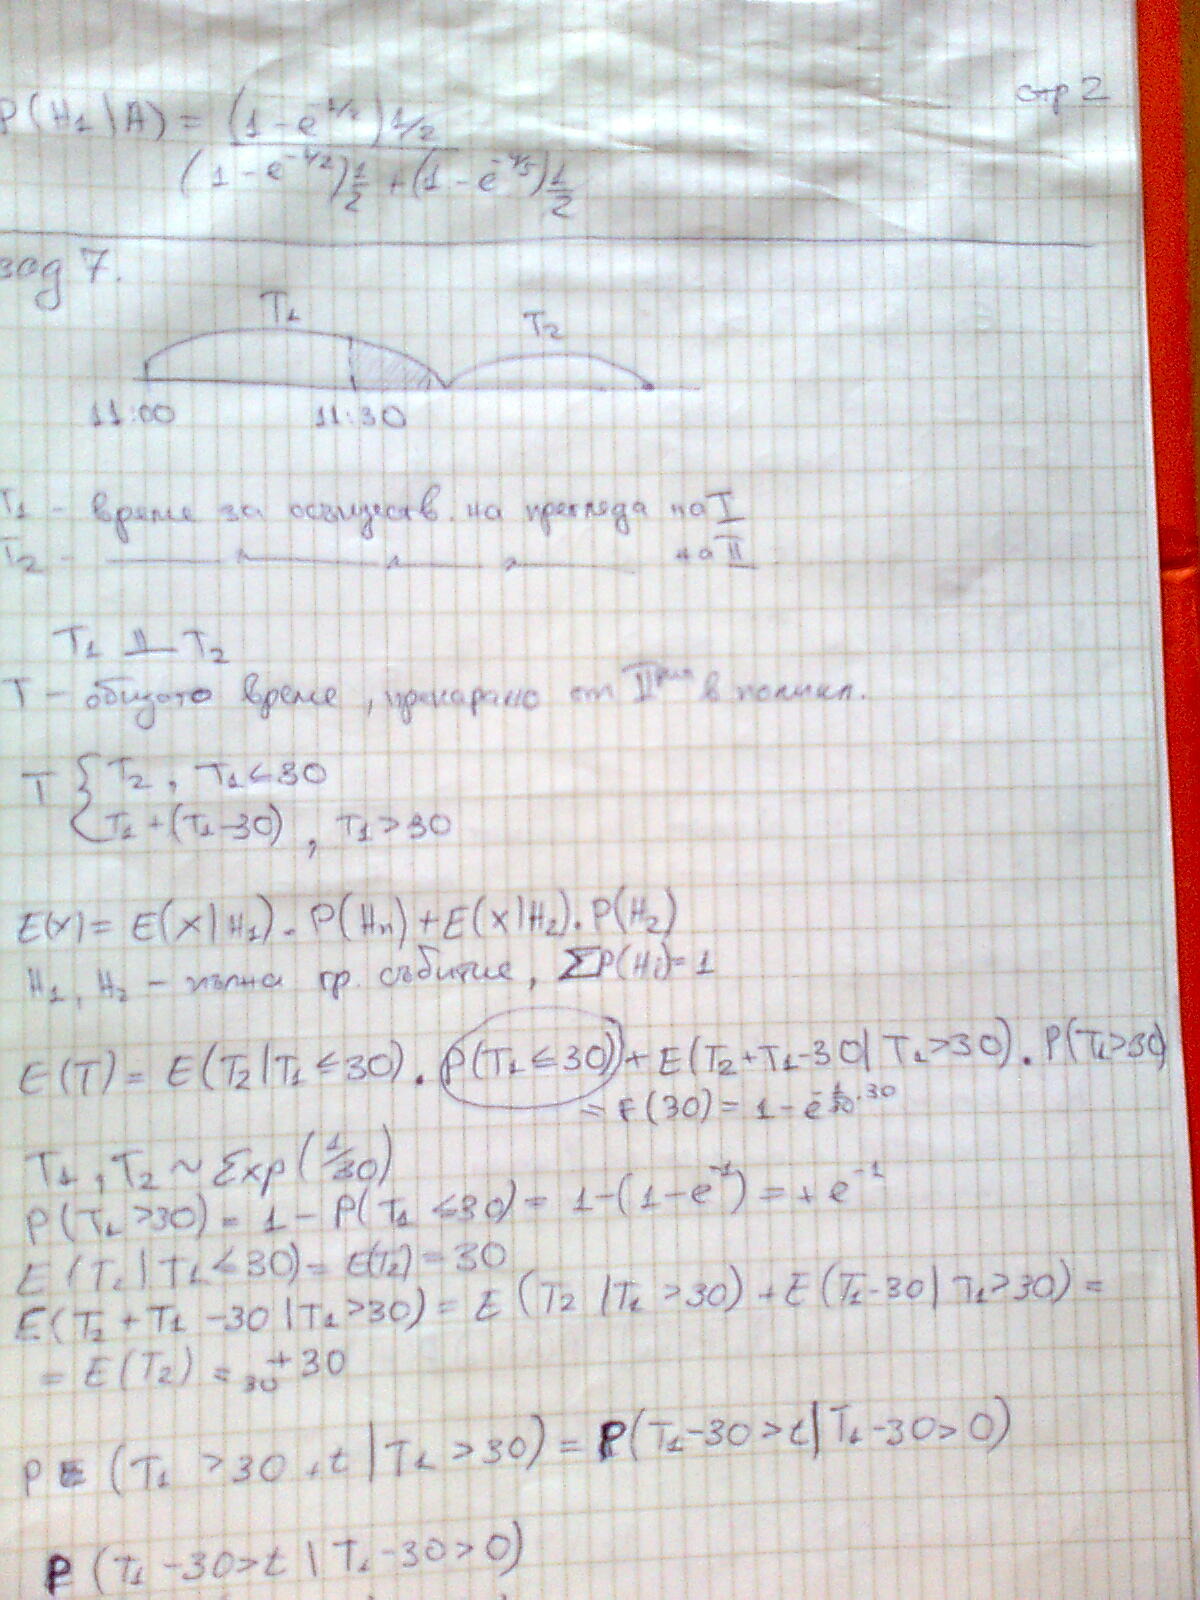 стр 2
P(H₁|A) = (1-e^-1/2)1/2
(1-e^-1/2)1/2 + (1-e^-1/5)1/2
зад 7.
T₁ T₂
11:00 11:30
T₁ - време за осъществ. на прегледа на I
T₂ - на II
T₁ ⫫ T₂
T - общото време, прекарано от II рия в поликл.
T { T₂, T₁≤30
T₁+(T₁-30), T₁>30
E(X) = E(X|H₁). P(Hn)+E(X|H₂). P(H₂)
H₁, H₂ - пълна гр. събитие, ΣP(Hi)=1
E(T) = E(T₂|T₁≤30). P(T₁≤30)+E(T₂+T₁-30|T₁>30). P(T₁>30)
= F(30) = 1-e^-1/30.30
T₁, T₂ ~ Exp(1/30)
P(T₁>30) = 1-P(T₁≤30) = 1-(1-e^-1) = +e^-1
E(T₂|T₁≤30) = E(T₂) = 30
E(T₂+T₁-30|T₁>30) = E(T₂|T₁>30)+E(T₁-30|T₁>30) =
= E(T₂) = 30+30
P(T₁>30+t|T₁>30) = P(T₁-30>t|T₁-30>0)
P(T₁-30>t|T₁-30>0)